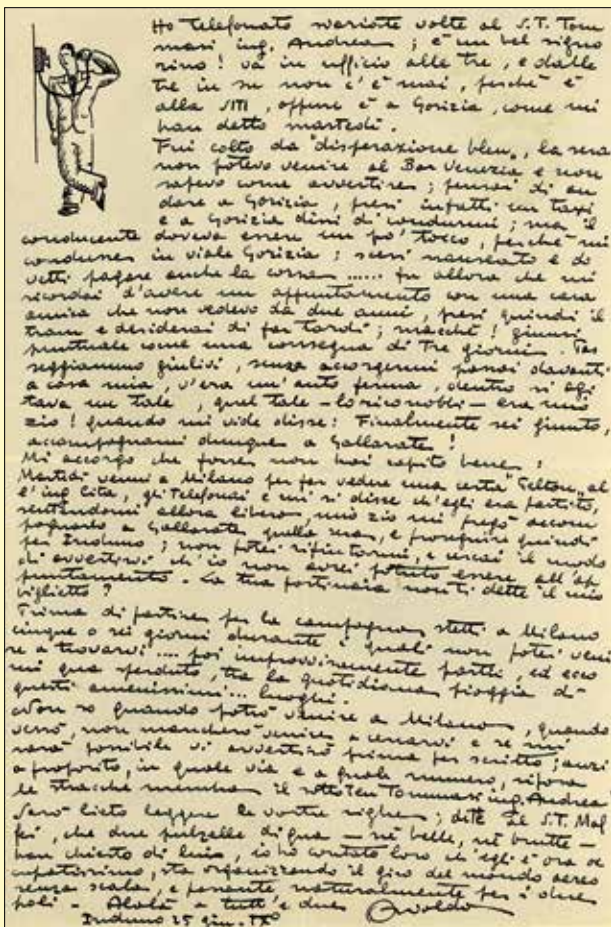 Ho telefonato svariate volte al S.T. Tom
masi ing. Andrea ; è un bel signo
rino ! va in ufficio alle tre, e dalle
tre in su non c'è mai, perchè è
alla SITI, oppure è a Gorizia, come mi
han detto martedì.
Fui colto da "disperazione bleu", la sera
non potevo venire al Bar Venezia e non
sapevo come avvertire ; pensai di an
dare a Gorizia, presi infatti un taxi
e a Gorizia dissi di condurmi ; ma il
conducente doveva essere un po' tocco, perchè mi
condusse in viale Gorizia ; scesi nauseato e do
vetti pagare anche la corsa ...... fu allora che mi
ricordai d'avere un appuntamento con una cara
amica che non vedevo da due anni, presi quindi il
tram e desiderai di far tardi ; macchè ! giunsi
puntuale come una consegna di tre giorni. Pas
seggiammo giulivi, senza accorgermi passai davanti
a casa mia, v'era un'auto ferma, dentro si agi
tava un tale, quel tale - lo riconobbi - era mio
zio ! quando mi vide disse : Finalmente sei giunto,
accompagnami dunque a Gallarate !
Mi accorgo che forse non hai capito bene :
Martedì venni a Milano per far vedere una certa "Telton" al
l'ing Cita, gli telefonai e mi si disse ch'egli era partito,
sentendomi allora libero, mio zio mi pregò accom
pagnarlo a Gallarate quella sera, e proseguire quindi
per Induno ; non potei rifiutarmi, e cercai il modo
di avvertirvi ch'io non avrei potuto essere all'ap
puntamento. La tua portinaia non ti dette il mio
biglietto ?
Prima di partire per la campagna stetti a Milano
cinque o sei giorni durante i quali non potei veni
re a trovarvi .... poi improvvisamente partii, ed ecco
mi qua sperduto, tra la quotidiana pioggia di
questi amenissimi ... luoghi.
Non so quando potrò venire a Milano, quando
verrò, non mancherò venire a cercarvi e se mi
sarà possibile vi avvertirò prima per scritto ; anzi
a proposito, in quale via e a quale numero, riposa
le stracche membra il sottoten Tommasi ing. Andrea
Sarò lieto leggere le vostre righe ; dite al S.T. Maf
fei, che due pulzelle di qua - nè belle, nè brutte -
han chiesto di lui, io ho contato loro ch'egli è ora oc
cupatissimo, sta organizzando il giro del mondo aereo
senza scalo, e passante naturalmente per i due
poli - Alalà a tutt'e due Osvaldo
Induno 25 giu. IX°